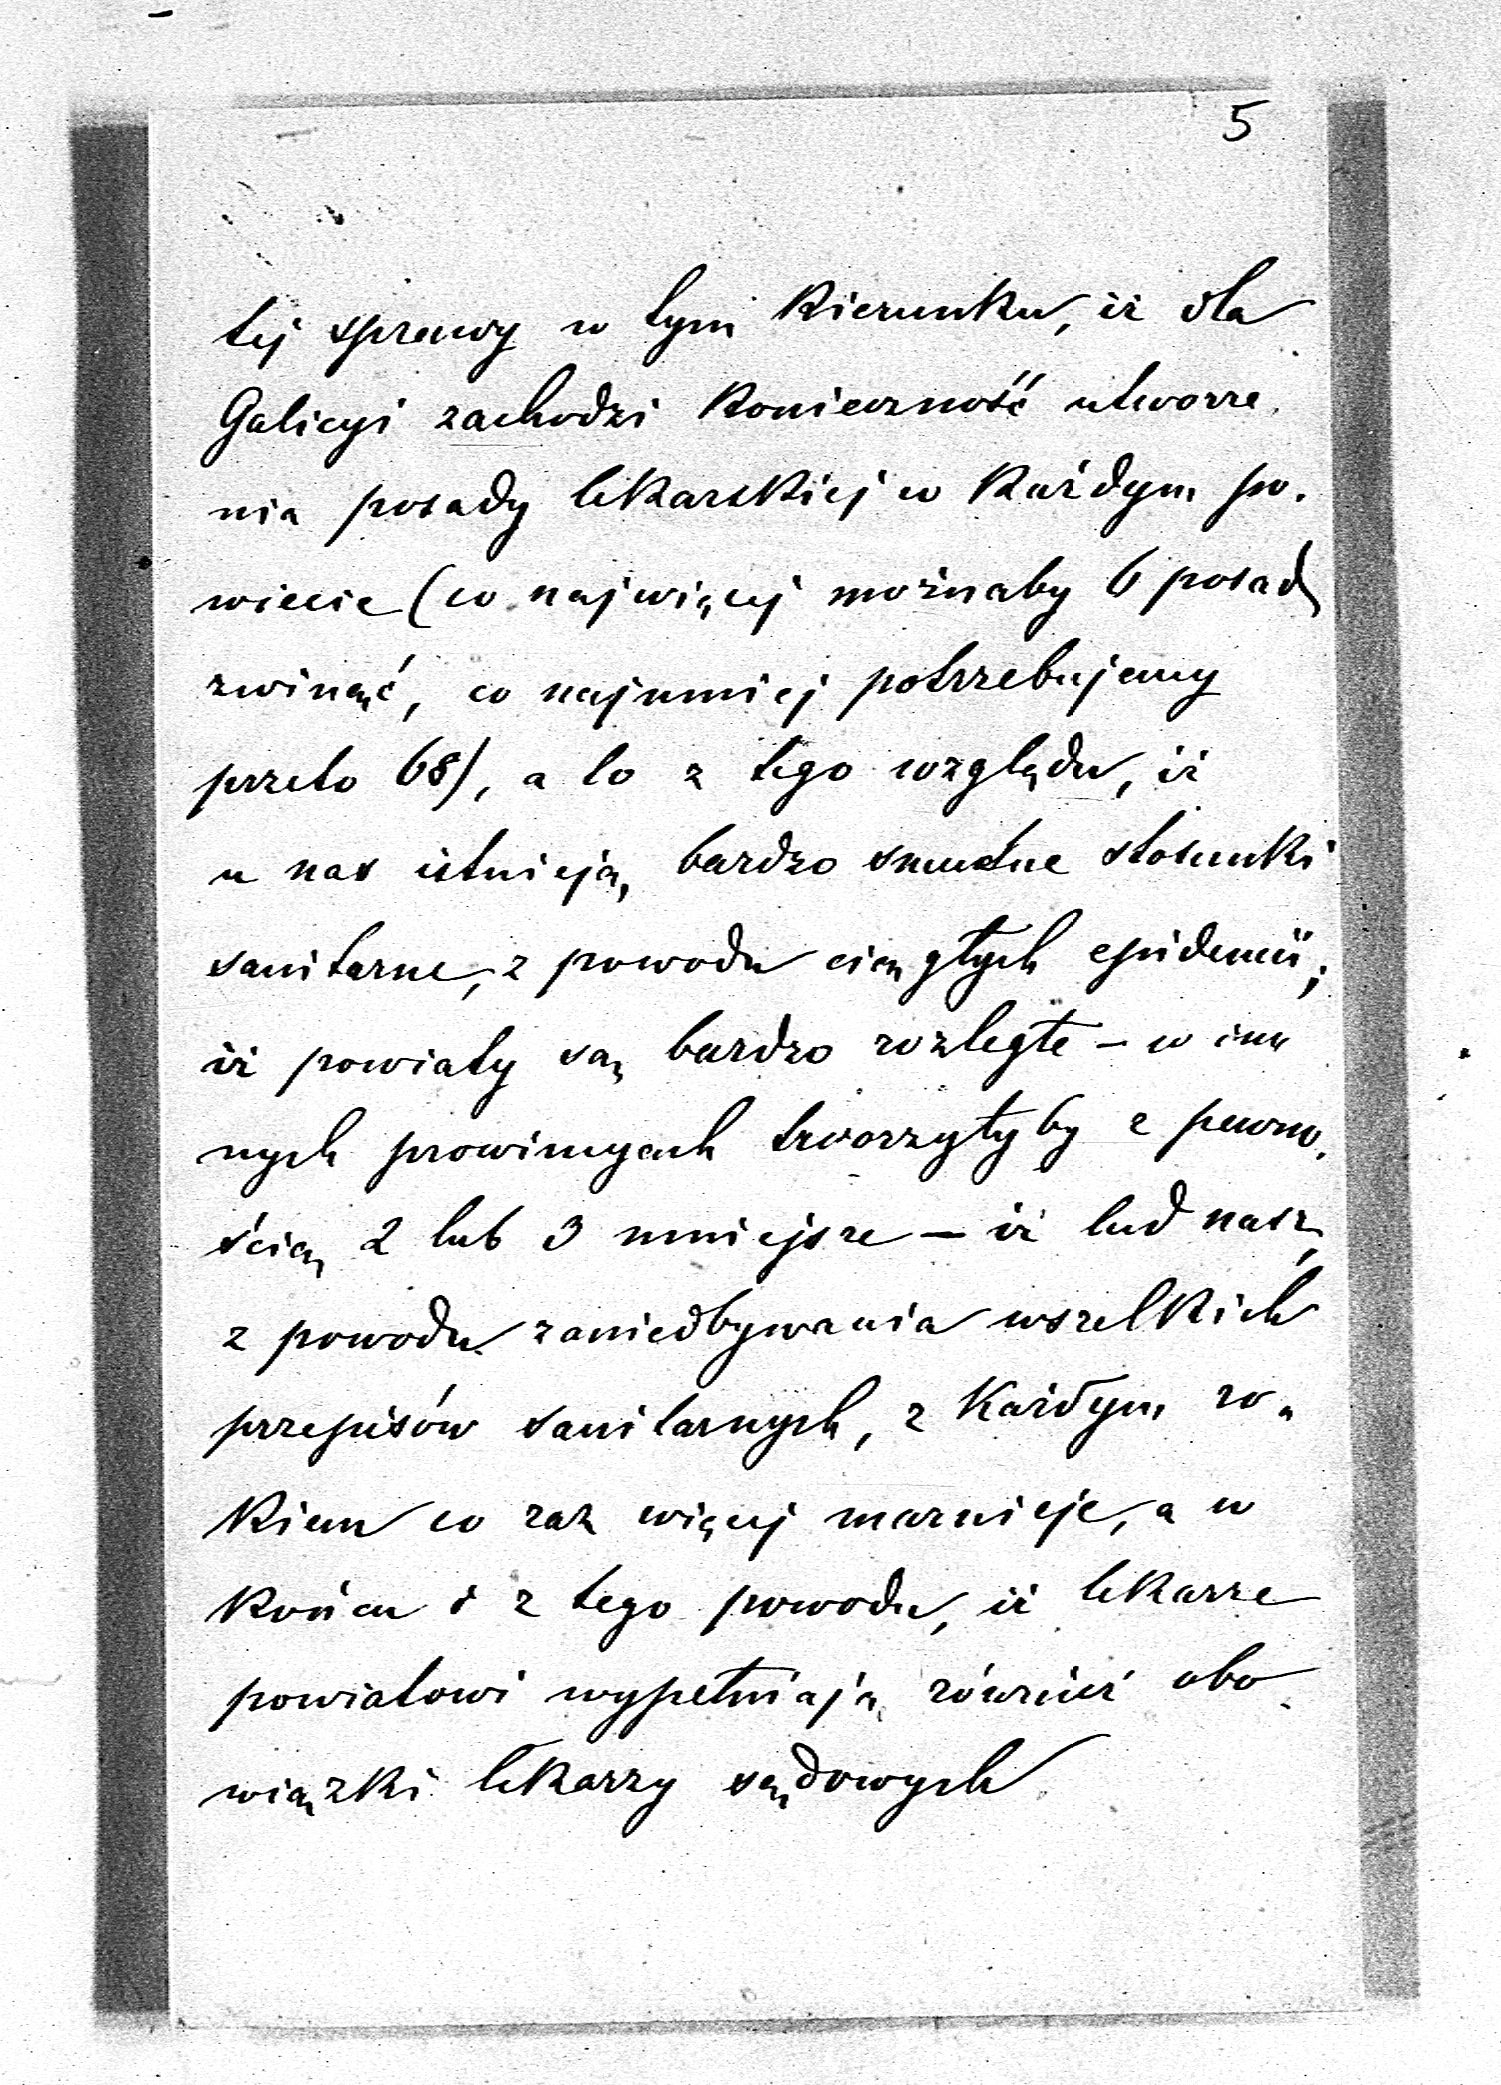 5
tej sprawy w tym kierunku, iż dla
Galicyi zachodzi konieczność utworze-
nia posady lekarskiej w każdym po-
wiecie (co najwięcej możnaby 6 posad
zwinąć, co najmniej potrzebujemy
przeto 68), a to z tego względu, iż
u nas istnieją bardzo smutne stosunki
sanitarne, z powodu ciągłych epidemii;
iż powiaty są bardzo rozległe – w inn
nych prowincyach tworzyłyby z pewno-
ścią 2 lub 3 mniejsze – iż lud nasz,
z powodu zaniedbywania wszelkich
przepisów sanitarnych, z każdym ro-
kiem co raz więcej marnieje, a w
końcu i z tego powodu, iż lekarze
powiatowi wypełniają również obo-
wiązki lekarzy sądowych